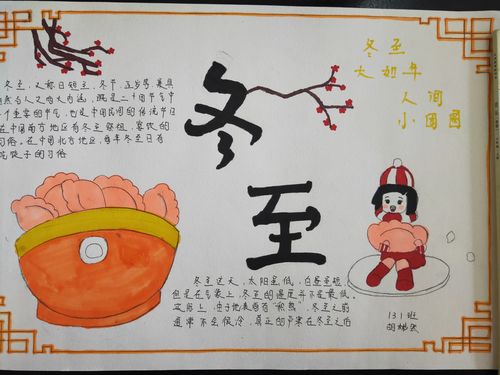 冬至，又称日短至、冬节、亚岁等，兼具
自然与人文两大内涵，既是二十四节气中
一个重要的节气，也是中国民间的传统节日
在中国南方地区有冬至祭祖、宴饮的
习俗。在中国北方地区，每年冬至日有
吃饺子的习俗
冬至
冬至
大如年
人间
小团圆
冬至这天，太阳虽低，白昼虽短
但是在气象上，冬至的温度并不是最低。
实际上，由于地表尚有“积热”，冬至之前
通常不会很冷，真正的严寒在冬至之后
131班